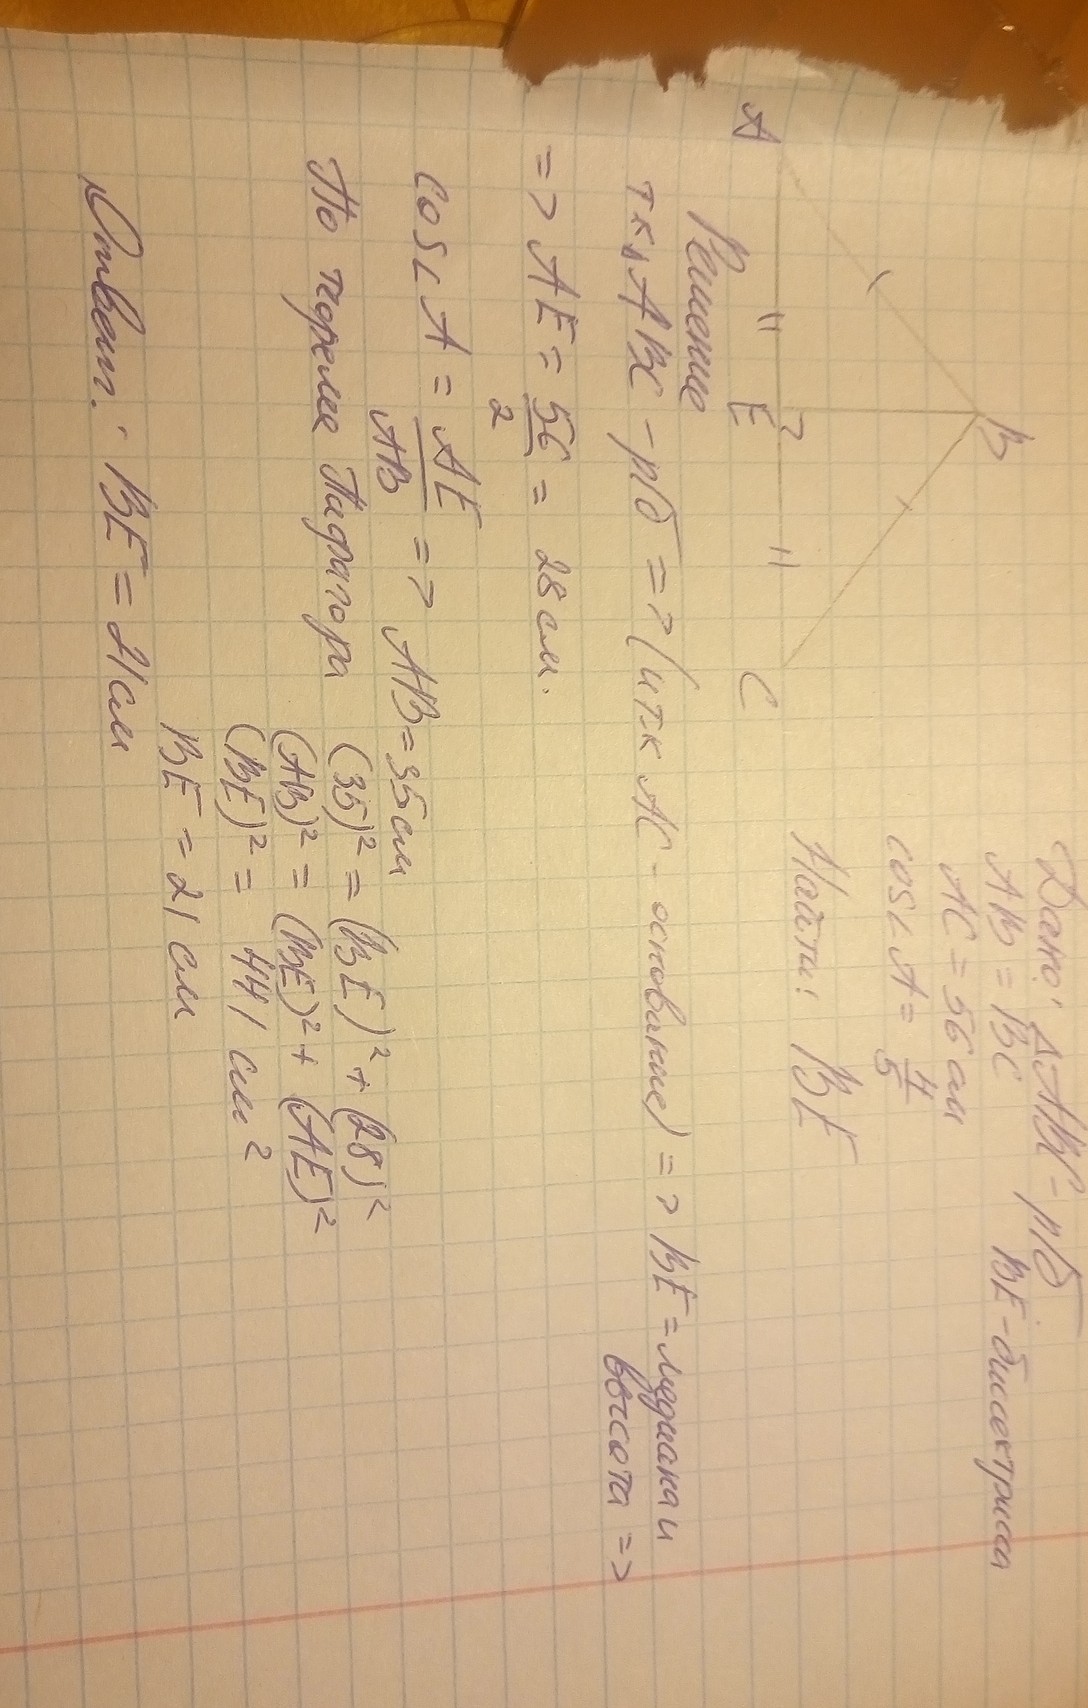 Дано: ΔABC - р/б
AB = BC BE - биссектриса
AC = 56 см
cos∠A = 4/5
Найти: BE
A
B
C
E
Решение
т.к. ΔABC - р/б => (и т.к AC - основание) => BE = медиана и
высота =>
=> AE = 56/2 = 28 см.
cos∠A = AE/AB => AB = 35 см
По теореме Пифагора (35)² = (BE)² + (28)²
(AB)² = (BE)² + (AE)²
(BE)² = 441 см²
BE = 21 см
Ответ: BE = 21 см